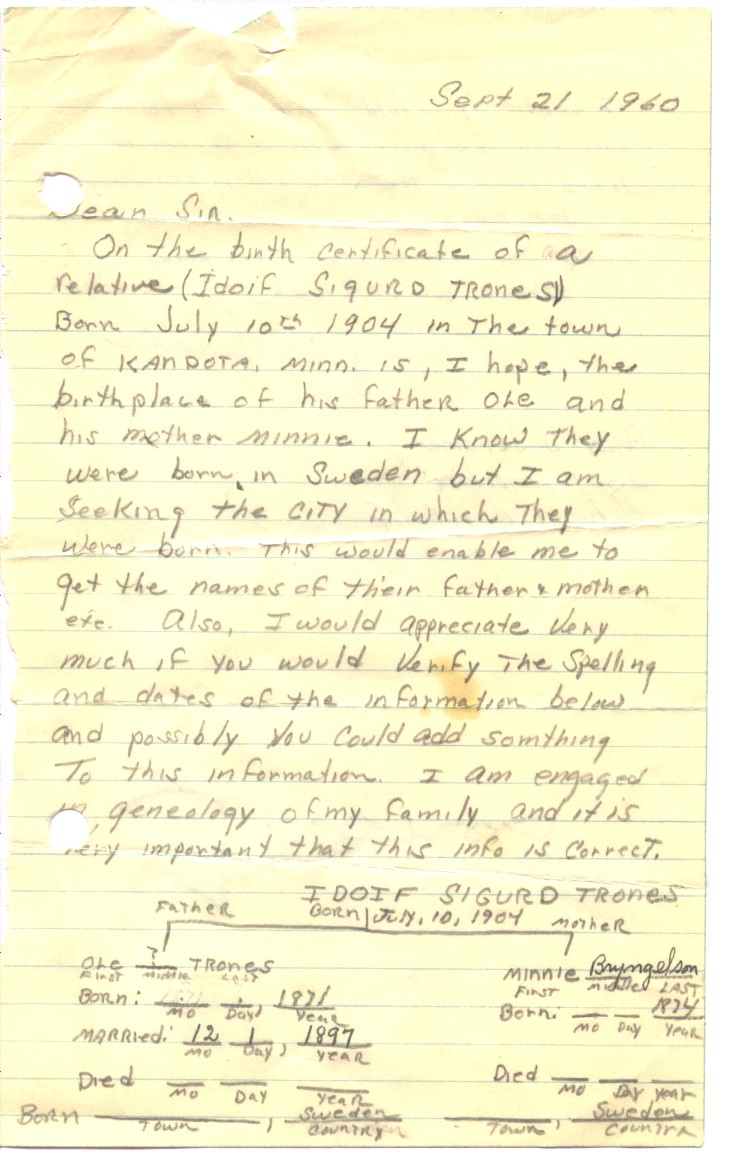 Sept 21 1960
Dear Sir.
On the birth certificate of a
relative (Idoif Sigurd Trones)
Born July 10th 1904 in The town
of KANDOTA, Minn. is, I hope, the
birthplace of his father Ole and
his mother Minnie. I Know They
were born in Sweden but I am
Seeking the CITY in which They
were born. This would enable me to
get the names of their father & mother
etc. Also, I would appreciate Very
much if you would Verify The Spelling
and dates of the information below
and possibly You Could add somthing
To this information. I am engaged
in geneology of my family and it is
very important that this info is Correct.
IDOIF SIGURD TRONES
Father BORN July, 10, 1904 Mother
OLE ? TRONES Minnie Bryngelson
First Middle Last First Middle LAST
Born: 1, 1871 Born: 1874
Mo Day Year Mo Day Year
MARRied: 12 1, 1897
Mo Day Year
Died Died
Mo Day Year Mo Day year
Born , Sweden , Sweden
Town Country Town Country